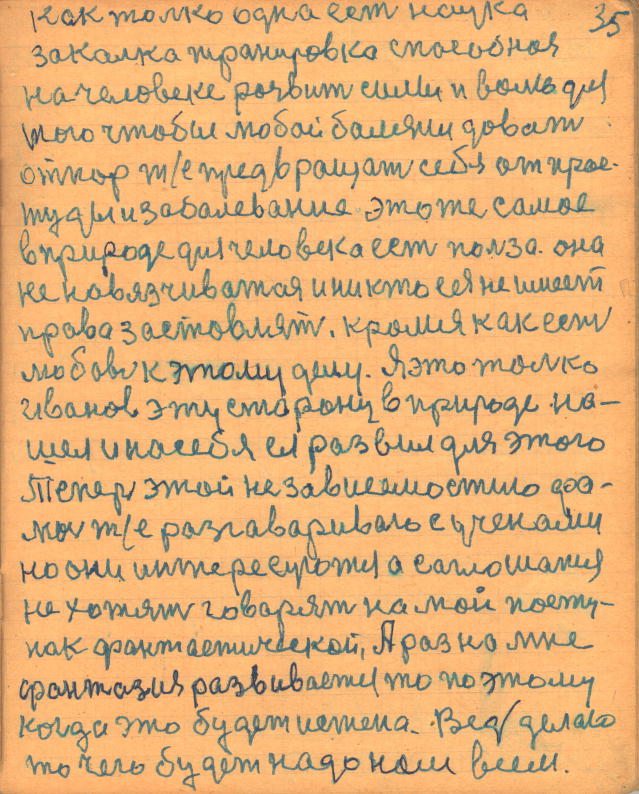 35
как толко одна ест наука
закалка транировка способная
на человеке розвит силы и волю для
того чтобы любой балезни доват
отпор т/е предвращат себя от прос-
туды и забалевание. это же самое
в природе для человека ест полза. она
не навязчиватая и никто ея не имеет
права заставлят. кромя как ест
любов к этому делу. Я это толко
Иванов эту сторону в природе на-
шел и на себя ея развил для этого
Тепер этой независемостию
т/е разгавариваю с учеками
но они интересуютя а саглошатя
не хотят говорят на мой посту-
пак фантастической, А раз на мне
фантазия развиваетя то поэтому
когда это будет истена. Вед делаю
то чего будет надо нам всем.